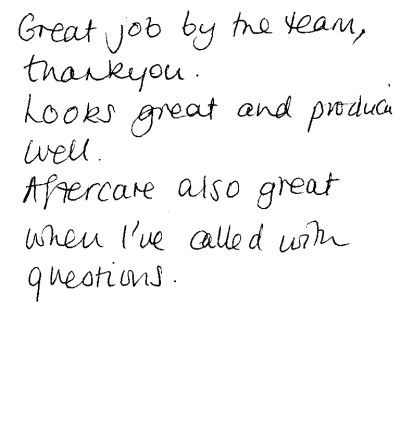 Great job by the team,
thankyou.
Looks great and
well.
Aftercare also great
when I've called with
questions.